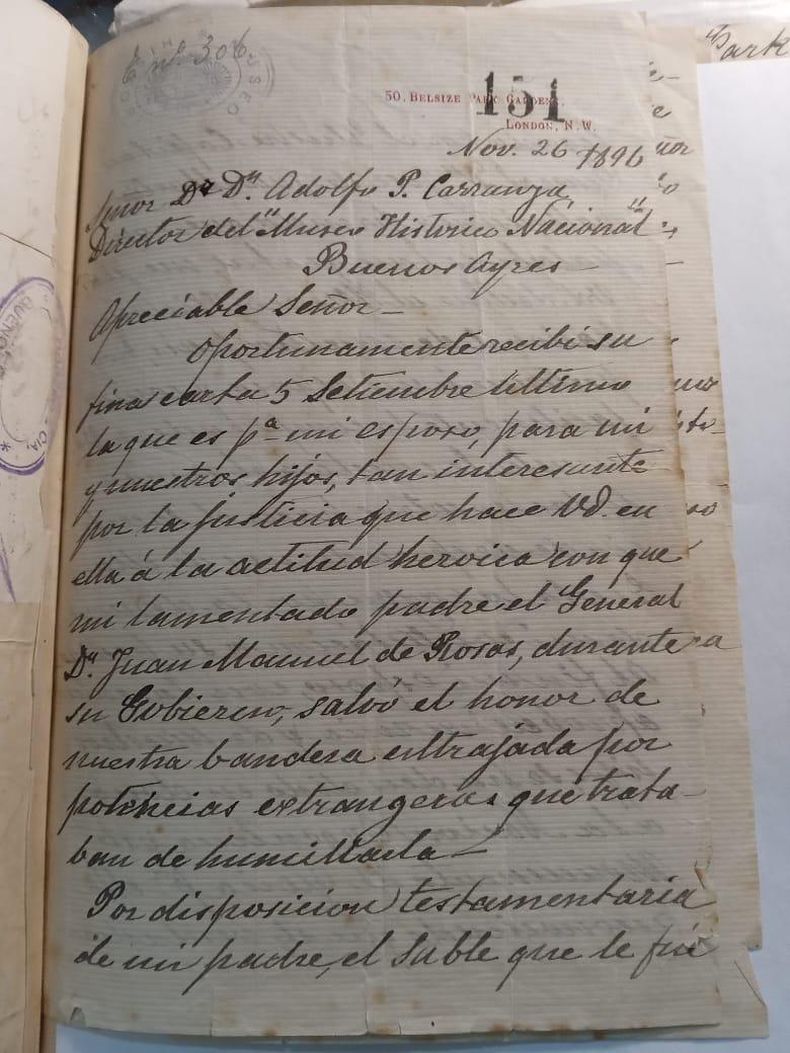 E nº 306
MUSEO
151
50, BELSIZE PARK GARDENS,
LONDON, N.W.
Nov. 26 1896
Señor Dr Dn Adolfo P. Carranza
Director del "Museo Historico Nacional"
Buenos Ayres —
Apreciable Señor —
Oportunamente recibi su
fina carta 5 Setiembre ultimo
la que es pa mi esposo, para mi
y nuestros hijos, tan interesante
por la justicia que hace Vd. en
ella á la actitud heroica con que
mi lamentado padre el General
Dn Juan Manuel de Rosas, durante
su Gobierno, salvó el honor de
nuestra bandera ultrajada por
potencias extrangeras que trata-
ban de humillarla —
Por disposicion testamentaria
de mi padre, el sable que le fué
Park